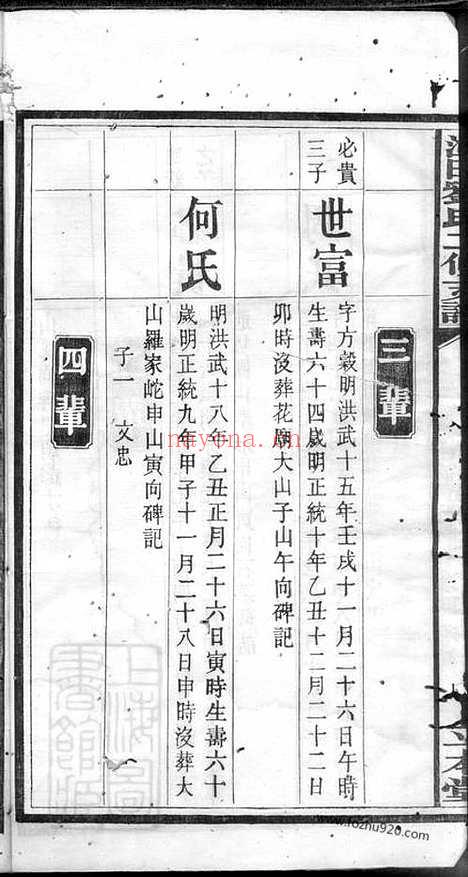 三輩
必貴
三子
世富
字方穀明洪武十五年壬戌十一月二十六日午時
生壽六十四歲明正統十年乙丑十二月二十二日
卯時沒葬花廟大山子山午向碑記
何氏
明洪武十八年乙丑正月二十六日寅時生壽六十
歲明正統九年甲子十一月二十八日申時沒葬大
山羅家岮申山寅向碑記
子一 文忠
四輩
上海圖書館藏
nayona.cn
www.fozhu920.com